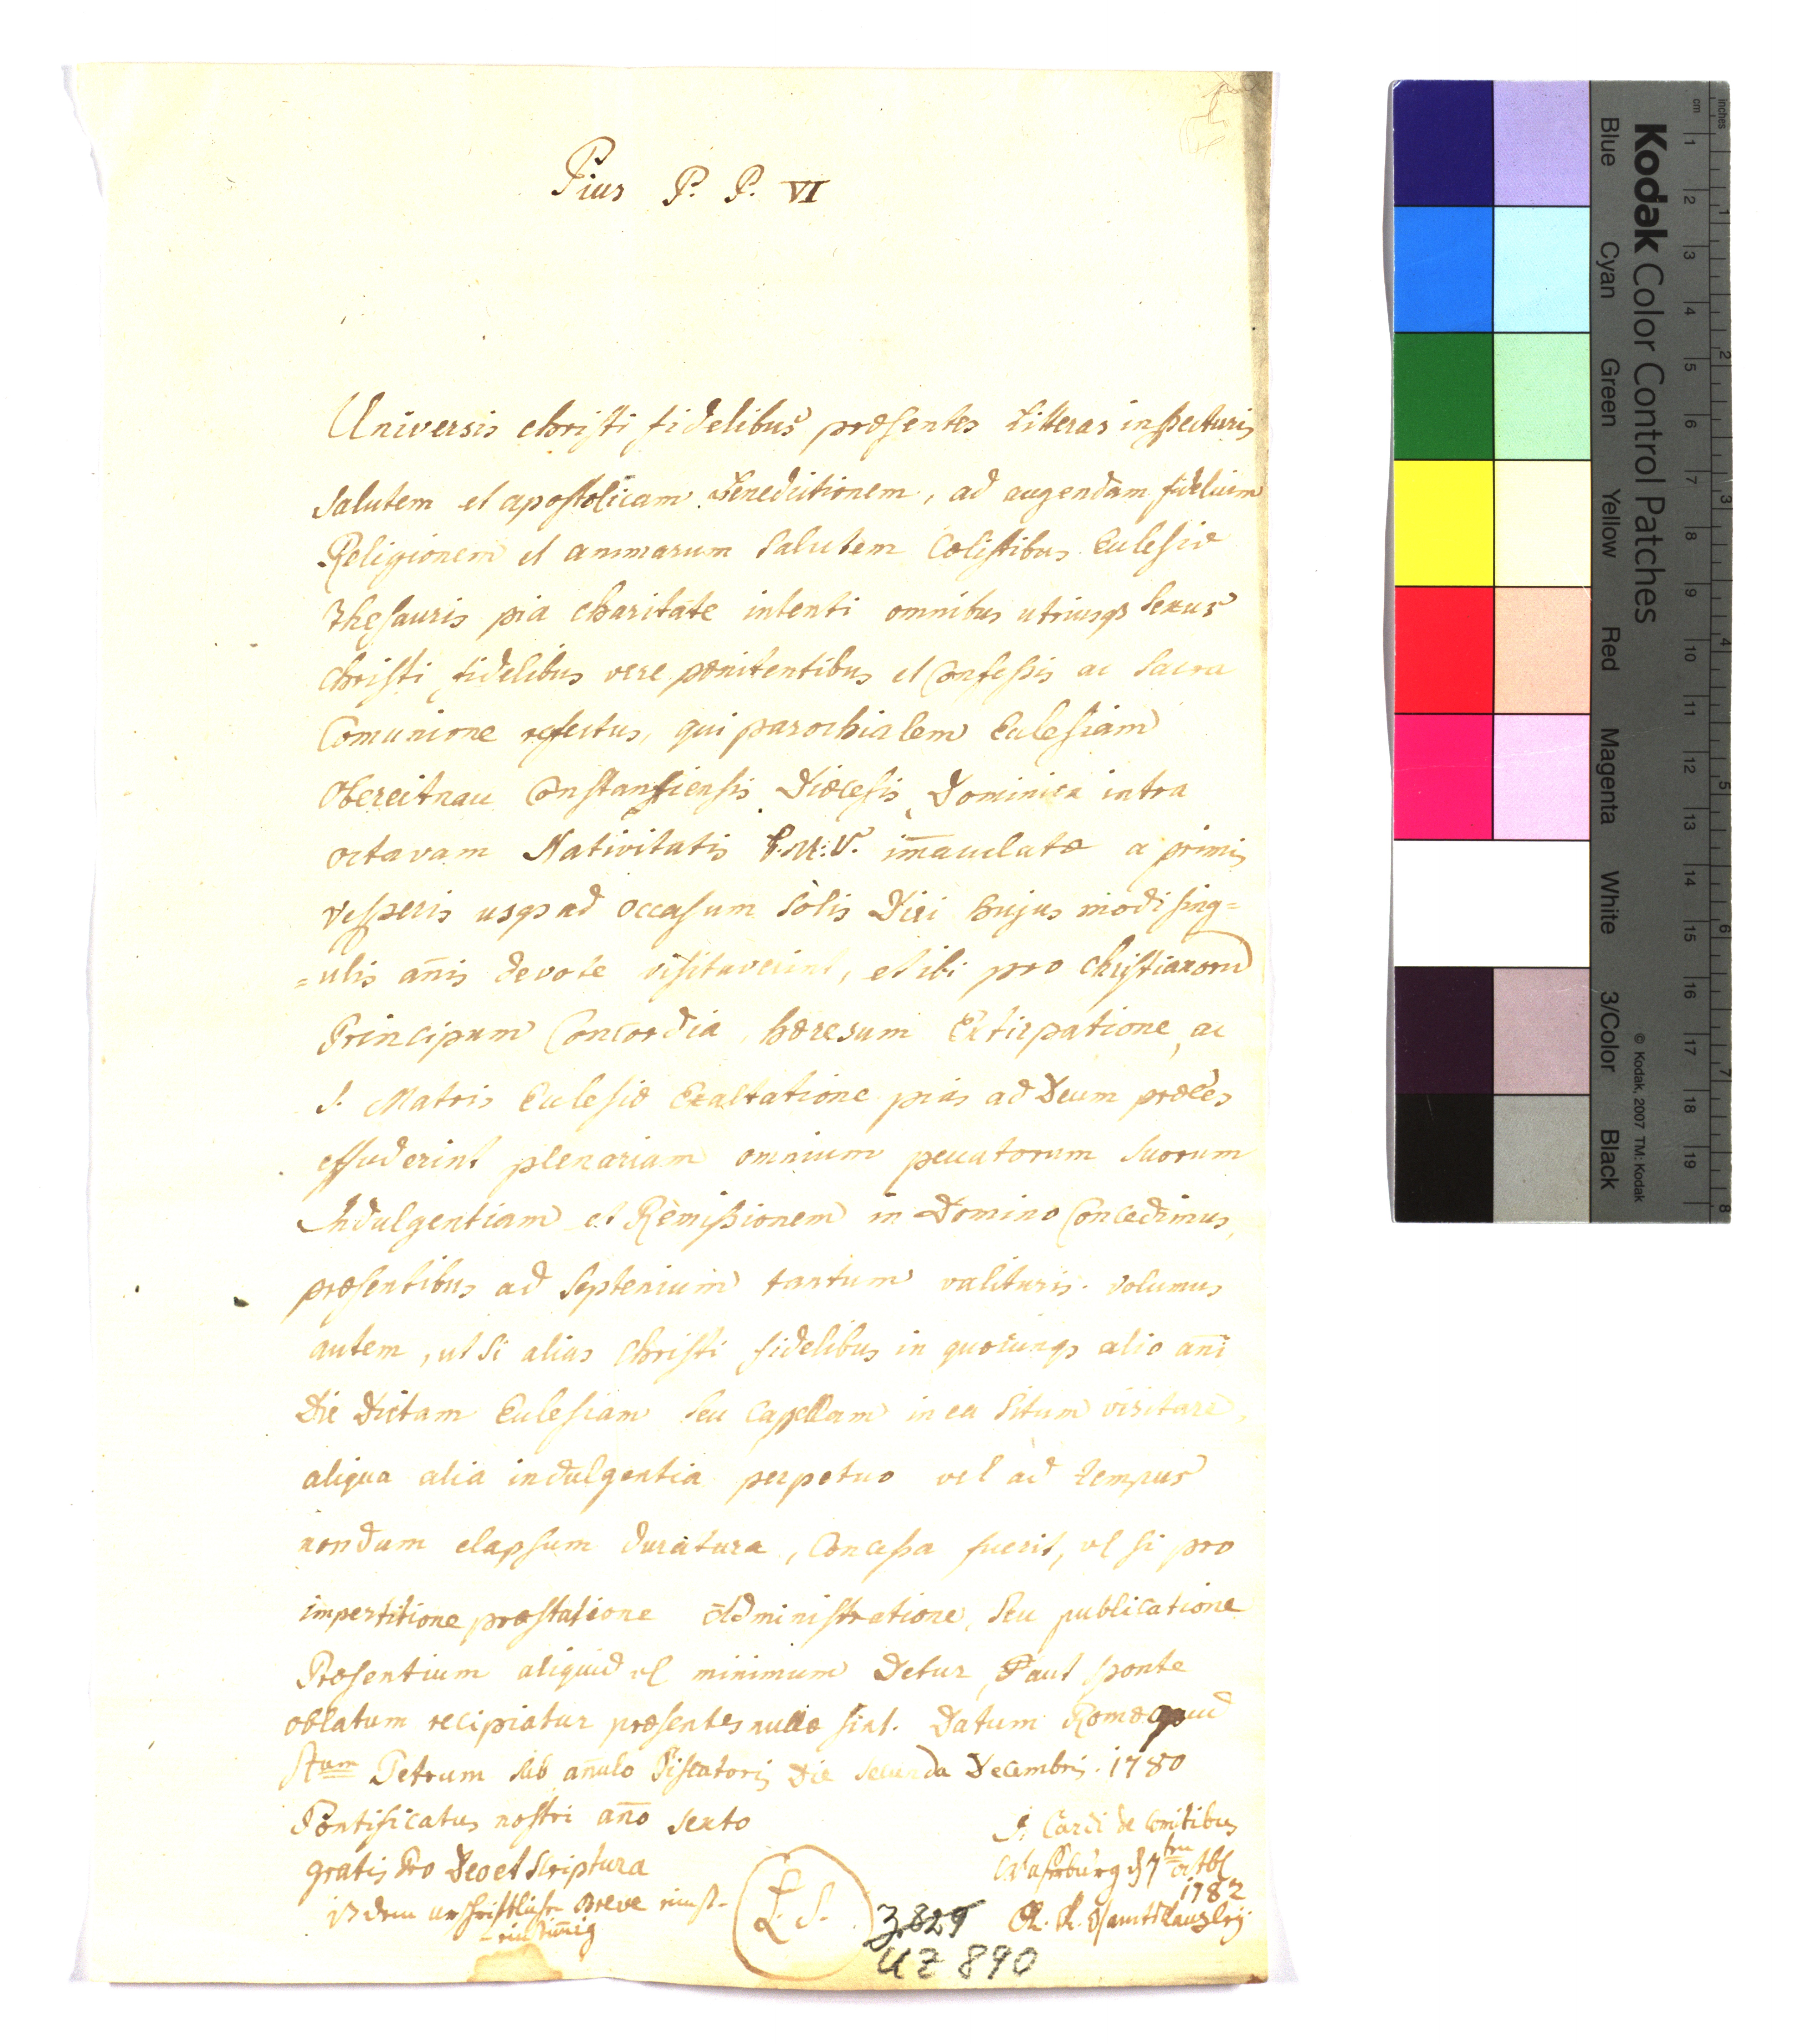 Pius P. P. VI
Universis christi fidelibus præsentes Litteras inspecturis
Salutem et apostolicam Benedictionem, ad augendam fidelium
Religionem et animarum Salutem Cœlestibus Eclesiæ
Thesauris pia charitate intenti omnibus utriusqs Sexus
Christi fidelibus vere pœnitentibus et Confessis ac Sacra
Comunione refectus, qui parochialem Eclesiam
Obereitnau Constantiensis Diœcesis Dominica intra
octavam Nativitatis B.M:V. im̄aculatæ a primis
vesperis usqs ad occasum Solis Diei hujus modi sing=
=ulis an̄is devote visitaverint, et ibi pro christianorū
Principum Concordia, hæresum Extirpatione, ac
S. Matris Eclesiæ Exaltatione pias ad Deum præces
effuderint plenariam omnium peccatorum Suorum
Indulgentiam et Remissionem in Domino Concedimus,
præsentibus ad Septenium tantum valituris. volumus
autem, ut Si alias Christi fidelibus in quocunqs alio an̄i
Die Dictam Eclesiam Seu Capellam in ea Situm visitare,
aliqua alia indulgentia perpetuo vel ad tempus
nondum elapsum duratura, Concessa fuerit, vel si pro
impertitione præstatione Administratione, Seu publicatione
Præsentium aliquid vel minimum Detur, aut sponte
oblatum recipiatur præsentes nullæ sint. Datum Romæ apud
Stum Petrum sub an̄ulo Piscatoris Die secunda Decembris. 1780
Pontificatus nostri an̄o sexto
gratis Pro Deo et Scriptura
J. Cardi de Comitibus
L. S.
1782
Breve
K. K. Oberamts Kanzley
Z 829
UZ 890
Kodak Color Control Patches
Blue Cyan Green Yellow Red Magenta White 3/Color Black
© Kodak, 2007 TM: Kodak
inches 1 2 3 4 5 6 7 8
cm 1 2 3 4 5 6 7 8 9 10 11 12 13 14 15 16 17 18 19